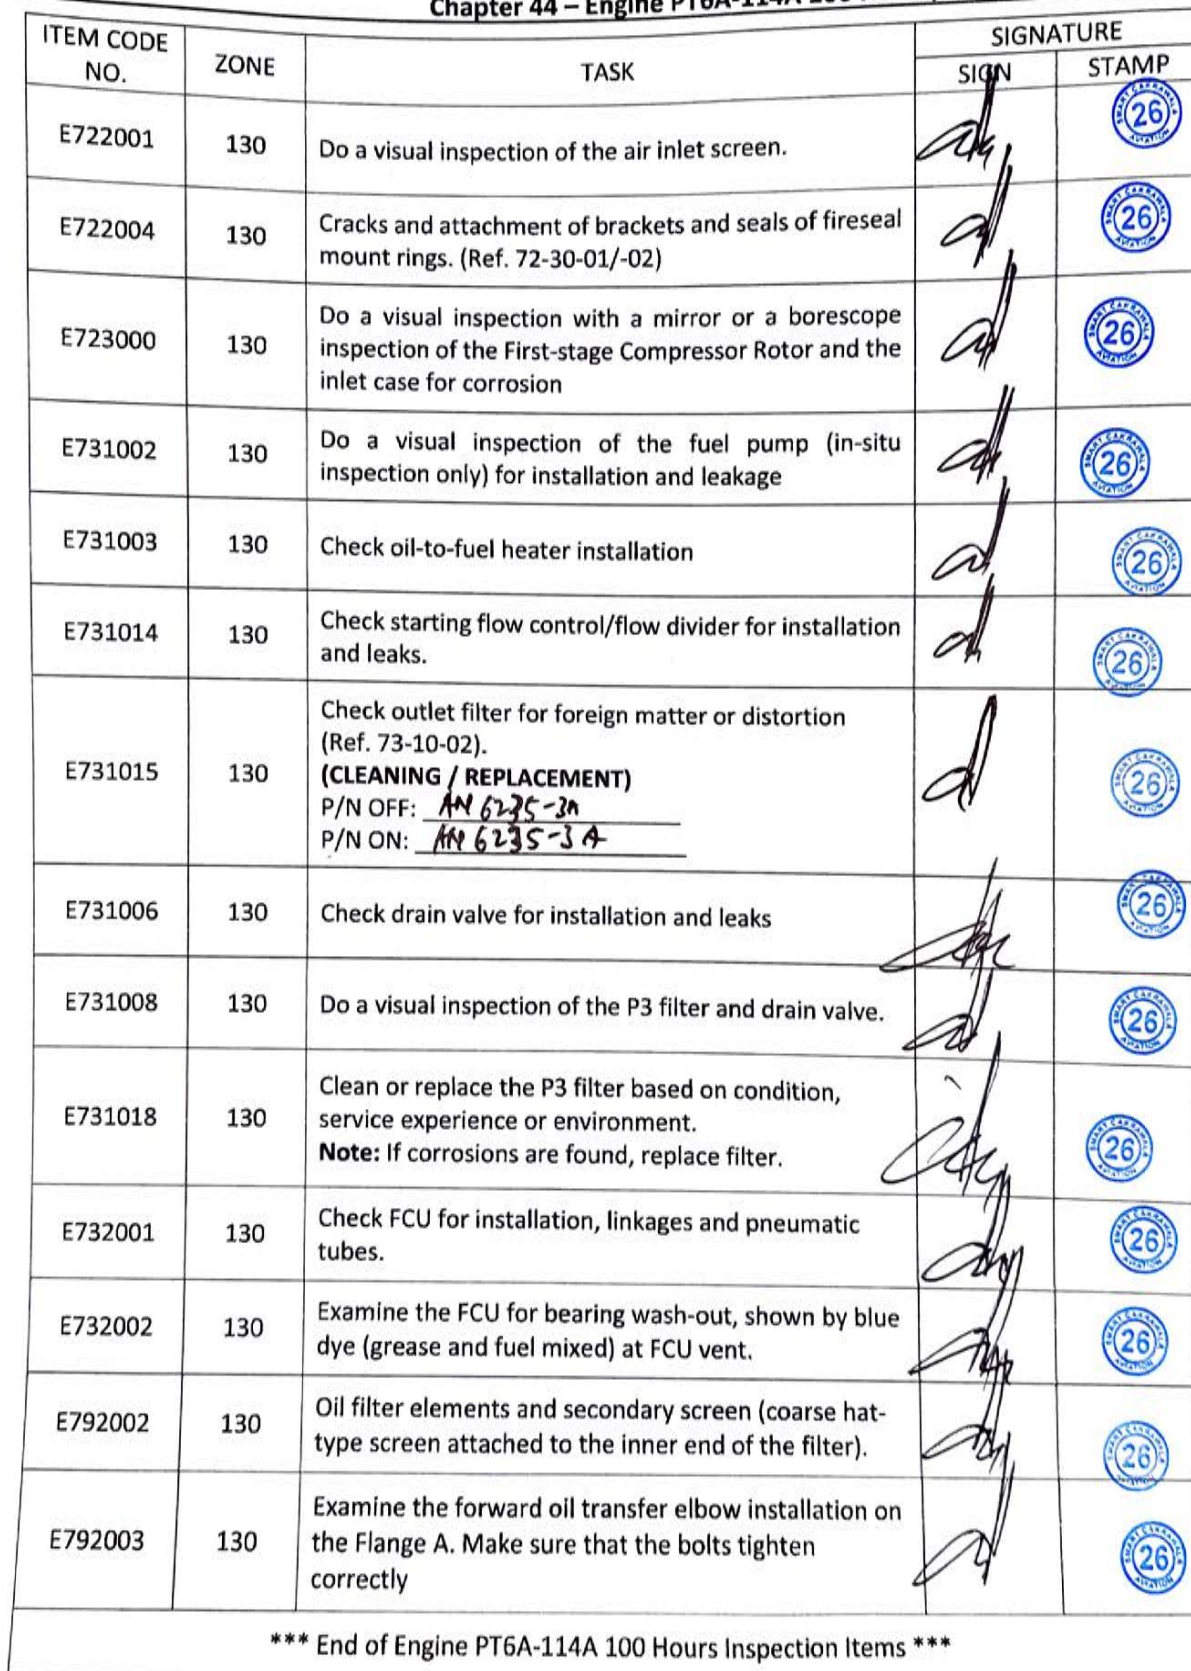 Chapter 44 – Engine PT6A-114A
ITEM CODE NO. ZONE TASK SIGNATURE
SIGN STAMP
E722001 130 Do a visual inspection of the air inlet screen.
SMART CAKRAWALA AVIATION 26
E722004 130 Cracks and attachment of brackets and seals of fireseal
mount rings. (Ref. 72-30-01/-02)
SMART CAKRAWALA AVIATION 26
E723000 130 Do a visual inspection with a mirror or a borescope
inspection of the First-stage Compressor Rotor and the
inlet case for corrosion
SMART CAKRAWALA AVIATION 26
E731002 130 Do a visual inspection of the fuel pump (in-situ
inspection only) for installation and leakage
SMART CAKRAWALA AVIATION 26
E731003 130 Check oil-to-fuel heater installation
SMART CAKRAWALA AVIATION 26
E731014 130 Check starting flow control/flow divider for installation
and leaks.
SMART CAKRAWALA AVIATION 26
E731015 130 Check outlet filter for foreign matter or distortion
(Ref. 73-10-02).
(CLEANING / REPLACEMENT)
P/N OFF: AN 6235-3A
P/N ON: AN 6235-3A
SMART CAKRAWALA AVIATION 26
E731006 130 Check drain valve for installation and leaks
SMART CAKRAWALA AVIATION 26
E731008 130 Do a visual inspection of the P3 filter and drain valve.
SMART CAKRAWALA AVIATION 26
E731018 130 Clean or replace the P3 filter based on condition,
service experience or environment.
Note: If corrosions are found, replace filter.
SMART CAKRAWALA AVIATION 26
E732001 130 Check FCU for installation, linkages and pneumatic
tubes.
SMART CAKRAWALA AVIATION 26
E732002 130 Examine the FCU for bearing wash-out, shown by blue
dye (grease and fuel mixed) at FCU vent.
SMART CAKRAWALA AVIATION 26
E792002 130 Oil filter elements and secondary screen (coarse hat-
type screen attached to the inner end of the filter).
SMART CAKRAWALA AVIATION 26
E792003 130 Examine the forward oil transfer elbow installation on
the Flange A. Make sure that the bolts tighten
correctly
SMART CAKRAWALA AVIATION 26
*** End of Engine PT6A-114A 100 Hours Inspection Items ***